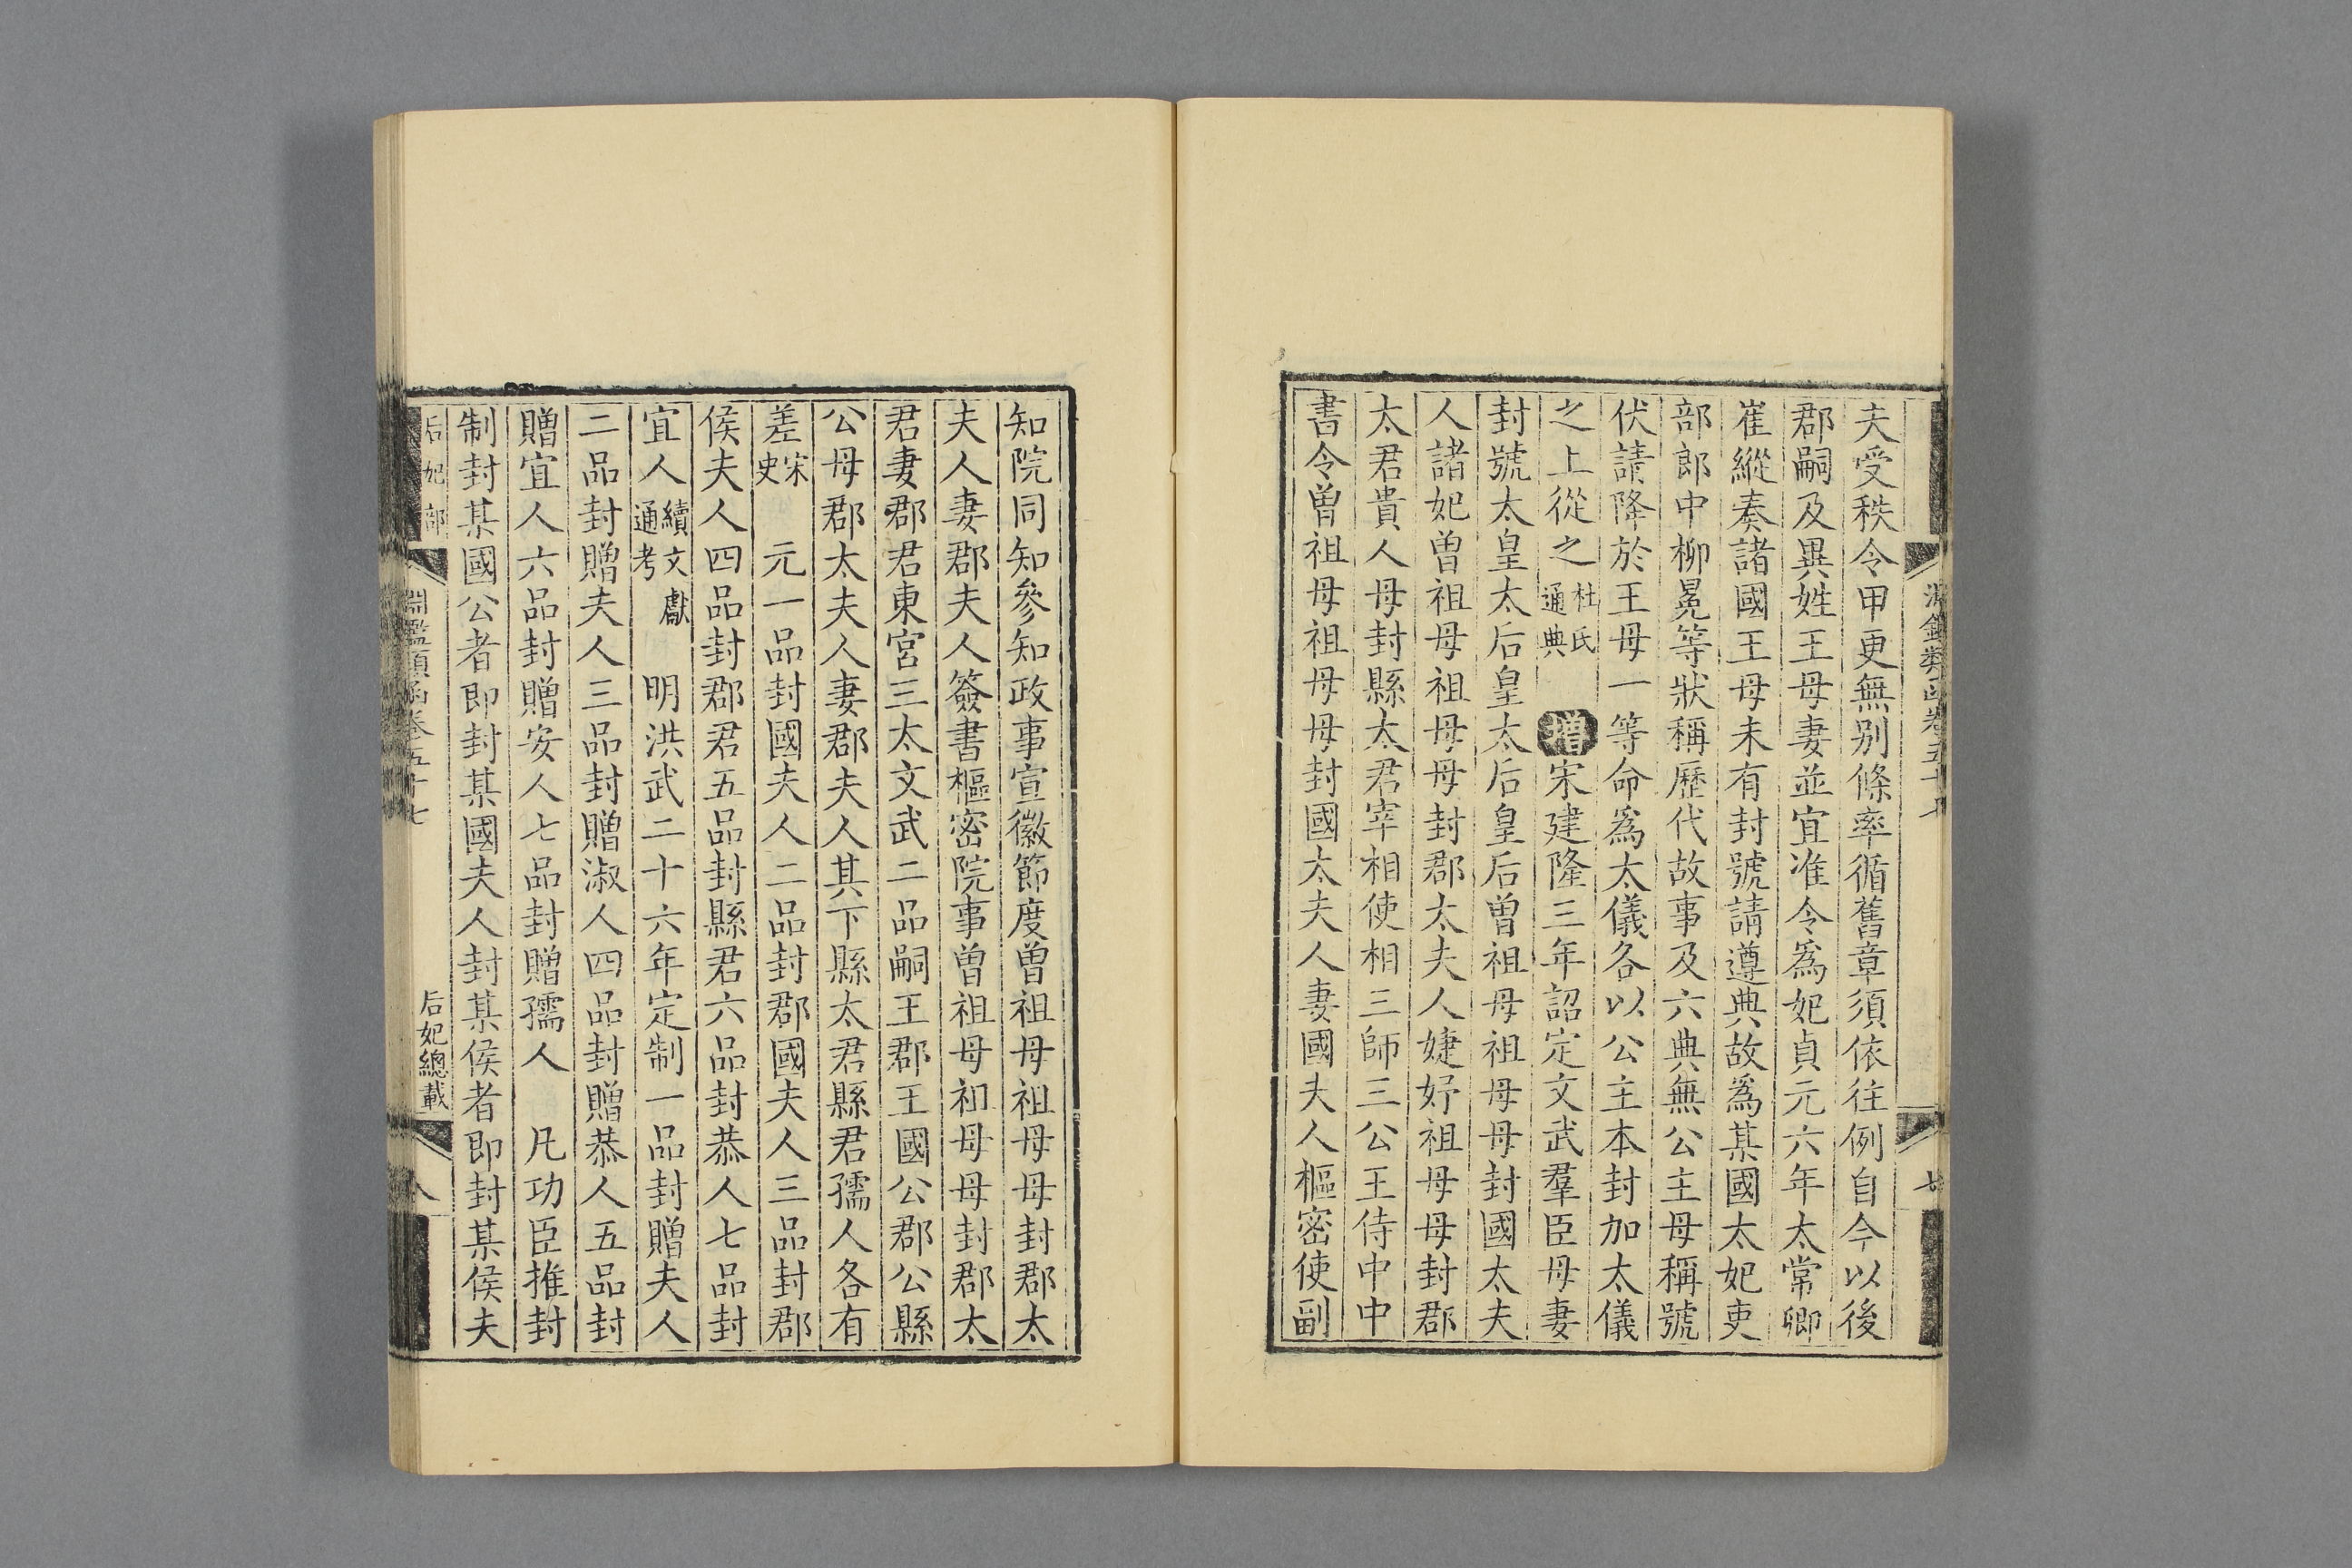 夫受秩令甲更無别條率循舊章須依往例自今以後
郡嗣及異姓王母妻並宜准令爲妃貞元六年太常卿
崔縱奏諸國王母未有封號請遵典故爲某國太妃吏
部郎中柳冕等狀稱歷代故事及六典無公主母稱號
伏請降於王母一等命爲太儀各以公主本封加太儀
之上從之杜氏通典 增宋建隆三年詔定文武羣臣母妻
封號太皇太后皇太后皇后曾祖母祖母母封國太夫
人諸妃曾祖母祖母母封郡太夫人婕妤祖母母封郡
太君貴人母封縣太君宰相使相三師三公王侍中中
書令曾祖母祖母母封國太夫人妻國夫人樞密使副
知院同知參知政事宣徽節度曾祖母祖母母封郡太
夫人妻郡夫人簽書樞密院事曾祖母祖母母封郡太
君妻郡君東宮三太文武二品嗣王郡王國公郡公縣
公母郡太夫人妻郡夫人其下縣太君縣君孺人各有
差宋史 元一品封國夫人二品封郡國夫人三品封郡
侯夫人四品封郡君五品封縣君六品封恭人七品封
宜人續文獻通考 明洪武二十六年定制一品封贈夫人
二品封贈夫人三品封贈淑人四品封贈恭人五品封
贈宜人六品封贈安人七品封贈孺人 凡功臣推封
制封某國公者即封某國夫人封某侯者即封某侯夫
后妃部 淵鑑類函卷五十七 后妃總載 八